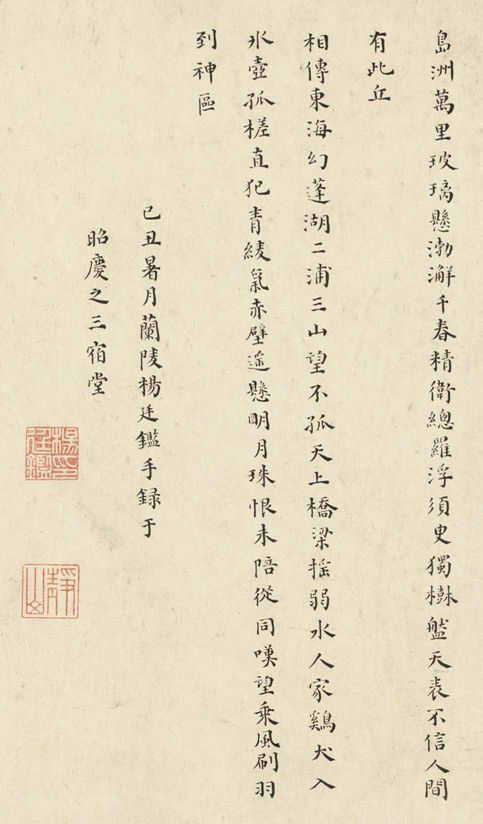 島洲萬里玻璃懸渤澥千春精衛總羅浮須臾獨樹盤天表不信人間
有此丘
相傳東海幻蓬湖二浦三山望不孤天上橋梁揺弱水人家鷄犬入
氷壺孤槎直犯青綾氣赤壁遥懸明月珠恨未陪從同嘆望乘風刷羽
到神區
己丑暑月蘭陵楊廷鑑手録于
昭慶之三宿堂
楊廷鑑印
靜山